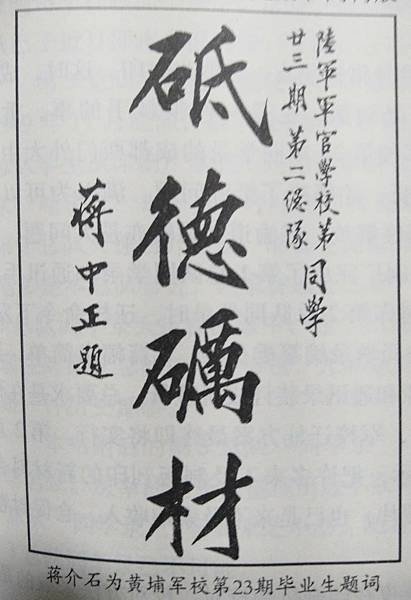 陸軍軍官學校第
廿三期第二總隊同學
砥德礪材
蔣中正題
蒋介石为黄埔军校第23期毕业生题词